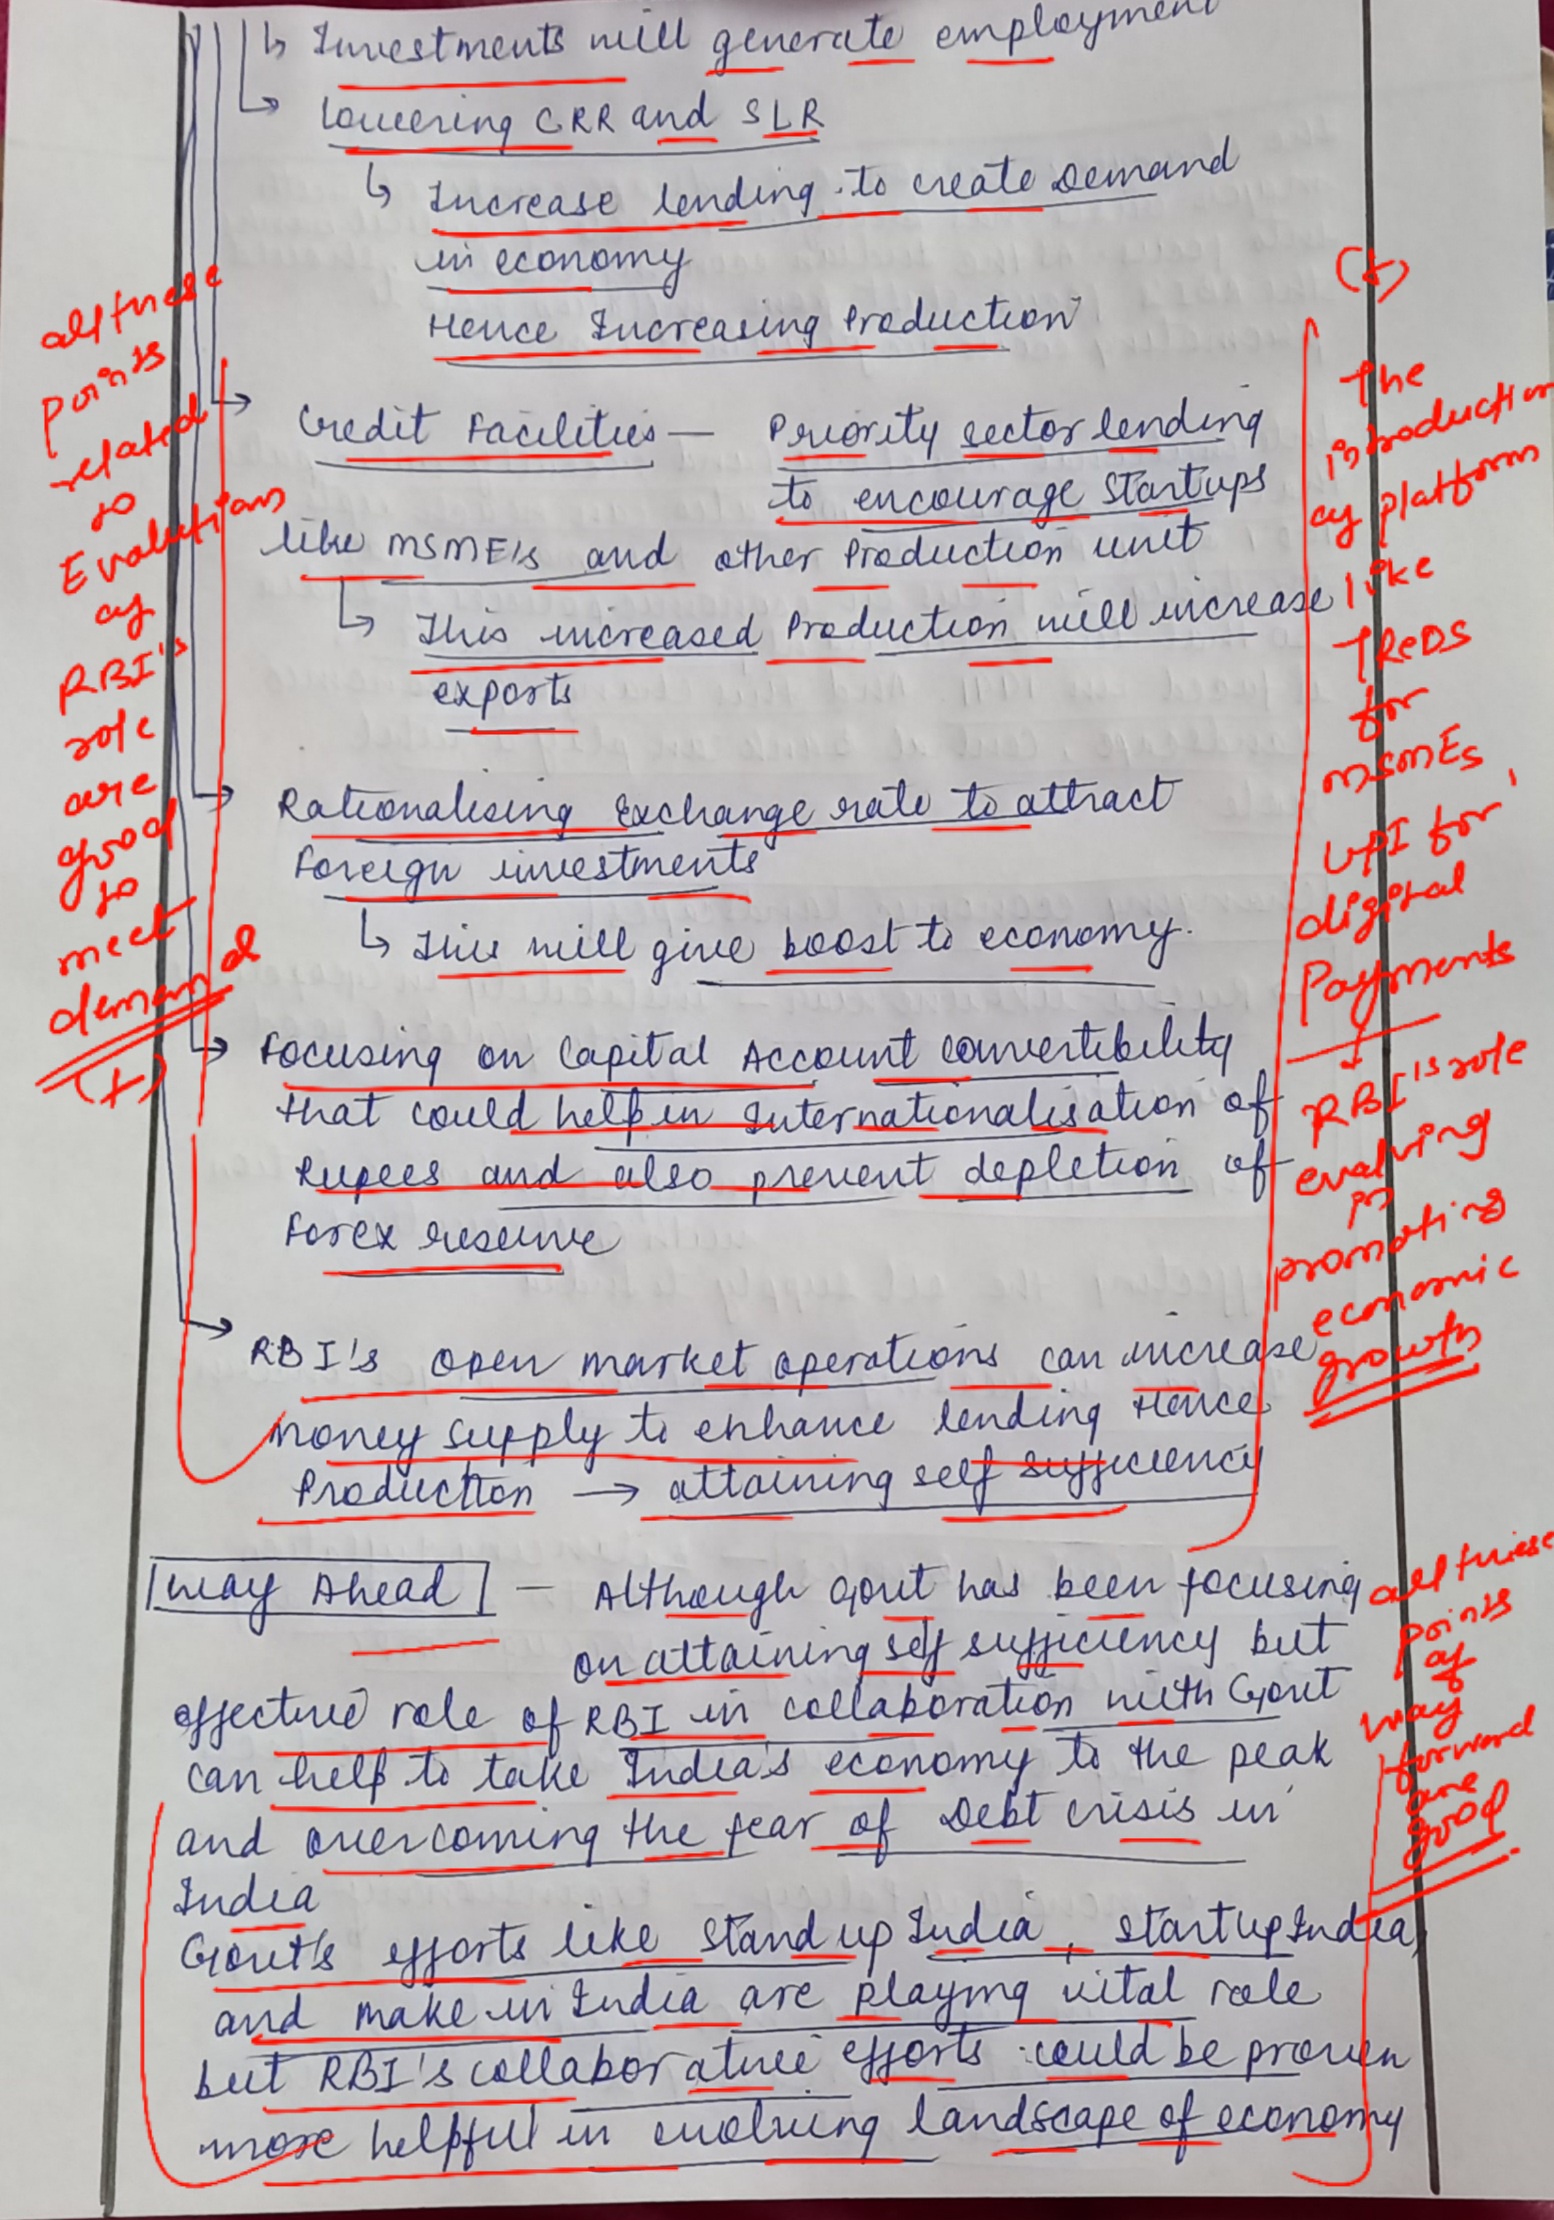 ↳ Investments will generate employment
→ Lowering CRR and SLR
↳ Increase lending to create Demand
in economy
Hence Increasing Production
→ Credit Facilities — Priority sector lending
to encourage startups
like MSME's and other Production unit
↳ This increased Production will increase
exports
→ Rationalising Exchange rate to attract
Foreign investments
↳ This will give boost to economy.
→ Focusing on Capital Account convertibility
that could help in Internationalisation of
Rupees and also prevent depletion of
Forex reserve
→ RBI's open market operations can increase
money supply to enhance lending Hence
Production → attaining self sufficiency
Way Ahead — Although Govt has been focusing
on attaining self sufficiency but
effective role of RBI in collaboration with Govt
can help to take India's economy to the peak
and overcoming the fear of Debt crisis in
India
Govt's efforts like Stand up India, Startup India,
and make in India are playing vital role
but RBI's collaborative efforts could be proven
more helpful in evolving landscape of economy
all these
points
related
to
Evalutions
of
RBI's
role
are
good
to
meet
demand
(+)
(+)
The
introduction
of platform
like
TReDS
for
MSMEs,
UPI for
digital
Payments
↓
RBI's role
evalving
in
promoting
economic
growth
all these
points
of
way
forward
are
good